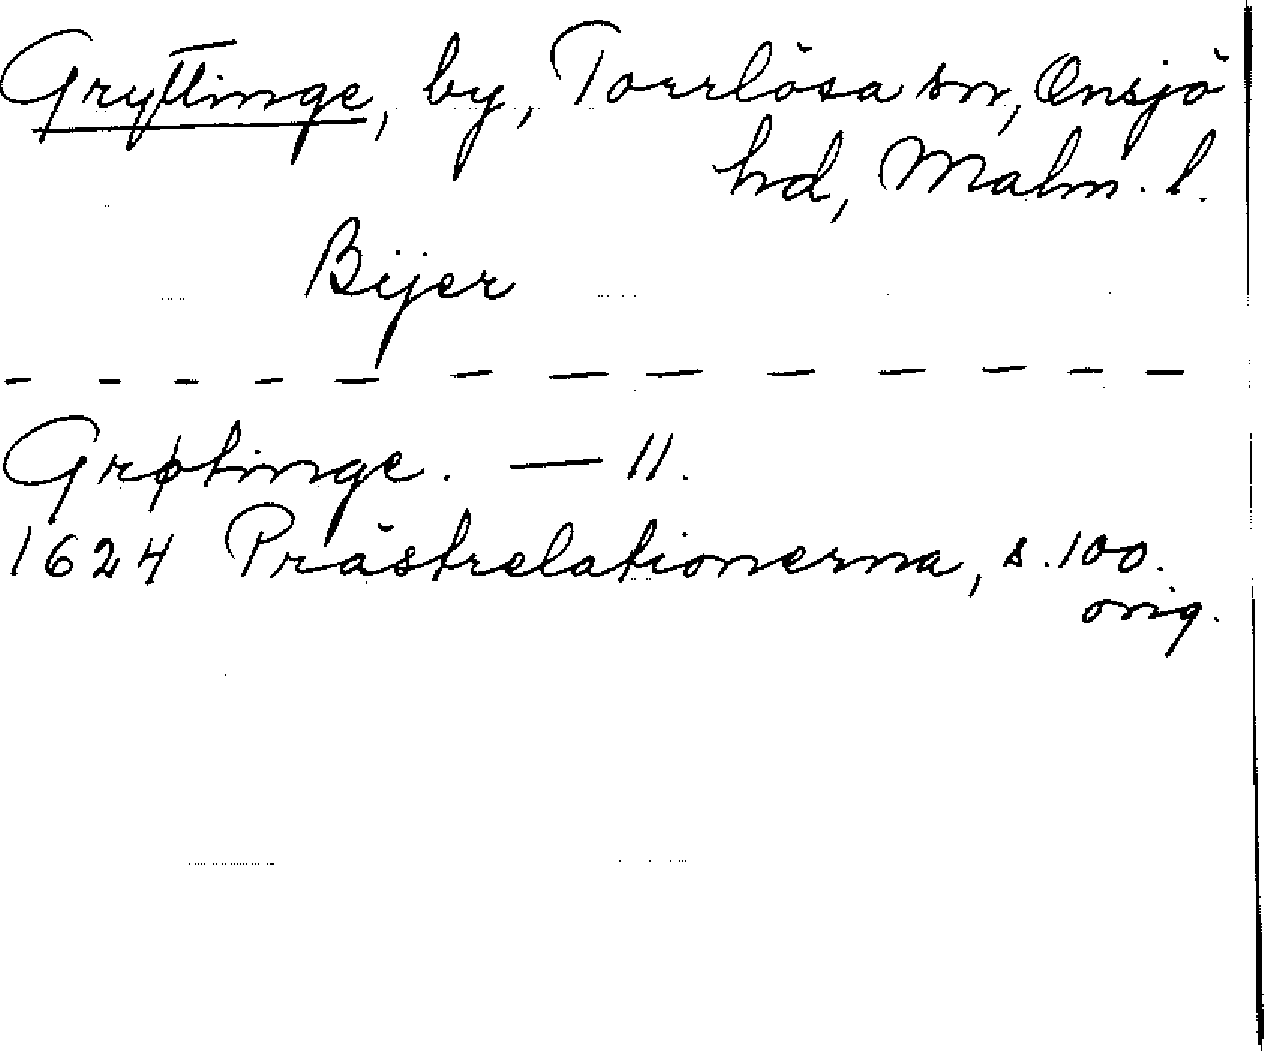 Gryttinge, by, Torrlösa sn, Onsjö
hd, Malm. l.
Bijer
- - - - - - - - - - - - -
Grøtinge. — 11.
1624 Prästrelationerna, s. 100.
orig.